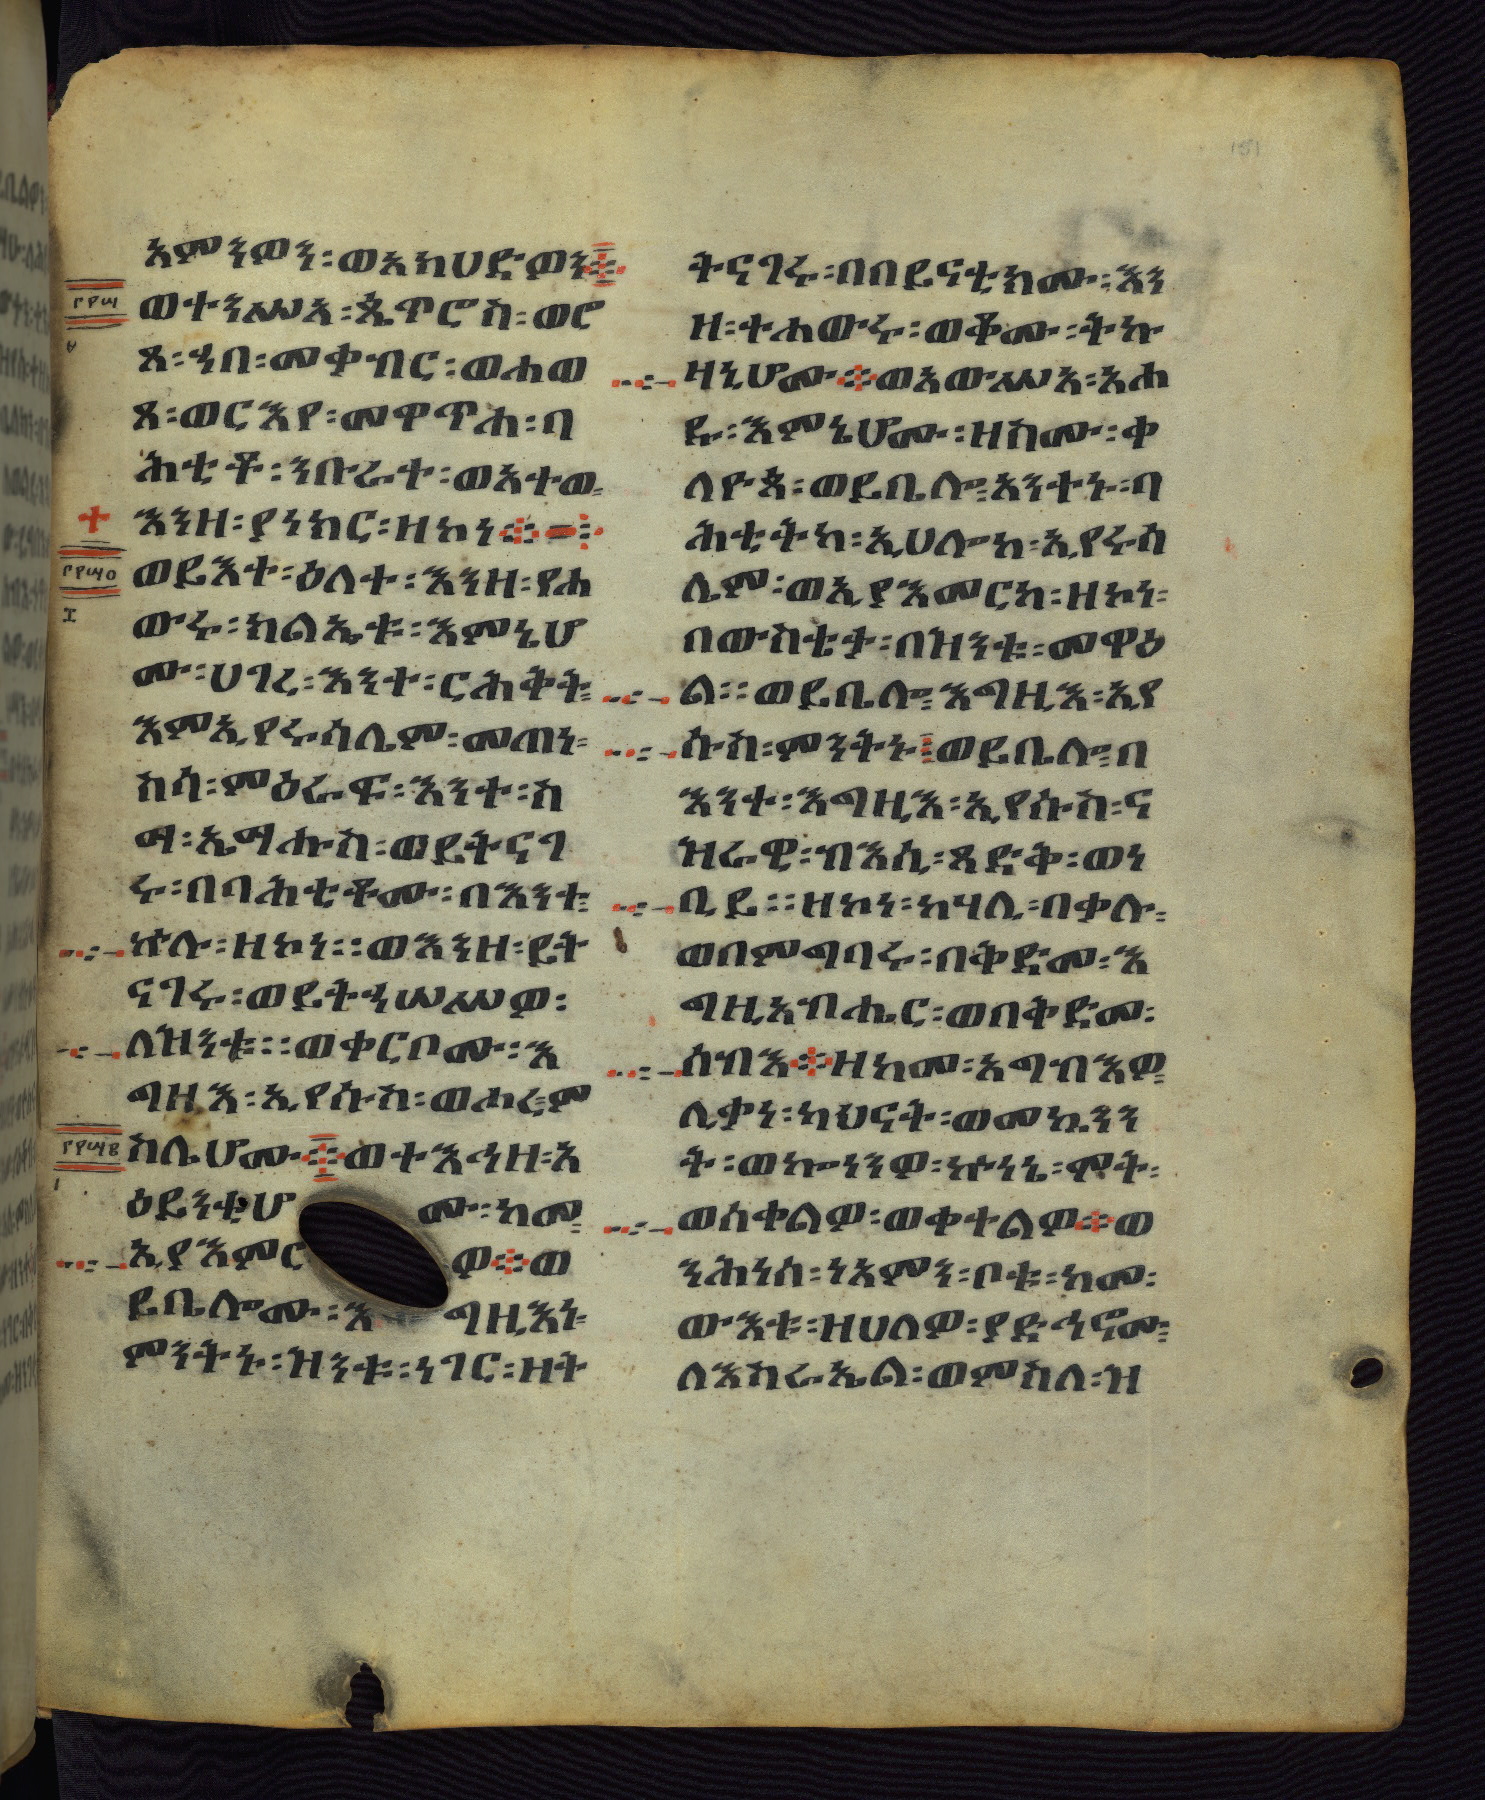 151
አምንዎን፡ወአክሀድዎን፨
ወተንሥአ፡ጴጥሮስ፡ወሮ
ጸ፡ኀበ፡መቃብር፡ወሐወ
ጸ፡ወርእየ፡መዋጥሐ፡ባ
ሕቲቶ፡ንቡራተ፡ወአተወ፡
እንዘ፡ያነክር፡ዘኮነ፨
ወይእተ፡ዕለተ፡እንዘ፡የሐ
ውሩ፡ክልኤቱ፡እምኔሆ
ሙ፡ሀገረ፡እንተ፡ርሕቅት፡
እምኢየሩሳሌም፡መጠነ፡
ስሳ፡ምዕራፍ፡እንተ፡ስ
ማ፡ኤማሑስ፡ወይትናገ
ሩ፡በባሕቲቶሙ፡በእንተ፡
ኵሉ፡ዘኮነ፡፡ወእንዘ፡ይት
ናገሩ፡ወይትኃሠሥዎ፡
ለዝንቱ፡፡ወቀርቦሙ፡እ
ግዚእ፡ኢየሱስ፡ወሖረ፡ም
ስሌሆሙ፨ወተእኅዘ፡አ
ዕይንቲሆሙ፡ከመ፡
ኢያእምርዎ፨ወ
ይቤሎሙ፡እግዚእነ፡
ምንትኑ፡ዝንቱ፡ነገር፡ዘት
ትናገሩ፡በበይናቲክሙ፡እን
ዘ፡ተሐውሩ፡ወቆሙ፡ትኩ
ዛኒሆሙ፨ወአውሥአ፡አሐ
ዱ፡እምኔሆሙ፡ዘስሙ፡ቀ
ለዮጳ፡ወይቤሎ፡አንተኑ፡ባ
ሕቲትከ፡ኢሀሎከ፡ኢየሩሳ
ሌም፡ወኢያእመርከ፡ዘኮነ፡
በውስቴታ፡በዝንቱ፡መዋዕ
ል፡፡ወይቤሎ፡እግዚእ፡ኢየ
ሱስ፡ምንትኑ፨ወይቤሎ፡በ
እንተ፡እግዚእ፡ኢየሱስ፡ና
ዝራዊ፡ብእሲ፡ጻድቅ፡ወነ
ቢይ፡፡ዘኮነ፡ከሃሊ፡በቃሉ፡
ወበምግባሩ፡በቅድመ፡እ
ግዚአብሔር፡ወበቅድመ፡
ሰብእ፨ዘከመ፡አግብእዎ፡
ሊቃነ፡ካህናት፡ወመኳንን
ት፡ወኰነንዎ፡ኵነኔ፡ሞት፡
ወሰቀልዎ፡ወቀተልዎ፨ወ
ንሕነሰ፡ነአምን፡ቦቱ፡ከመ፡
ውእቱ፡ዘሀለዎ፡ያድኅኖሙ፡
ለእስራኤል፡ወምስለ፡ዝ